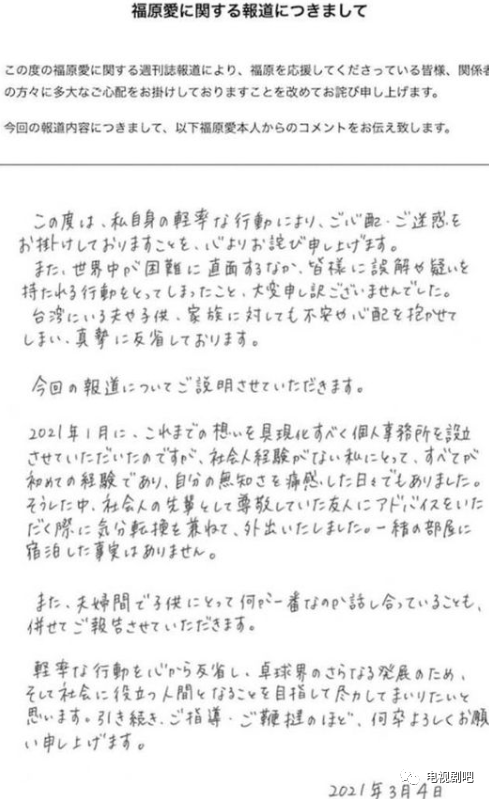 福原愛に関する報道につきまして
この度の福原愛に関する週刊誌報道により、福原を応援してくださっている皆様、関係者
の方々に多大なご心配をお掛けしておりますことを改めてお詫び申し上げます。
今回の報道内容につきまして、以下福原愛本人からのコメントをお伝え致します。
この度は、私自身の軽率な行動により、ご心配・ご迷惑を
お掛けしておりますことを、心よりお詫び申し上げます。
また、世界中が困難に直面するなか、皆様に誤解や疑いを
持たれる行動をとってしまったこと、大変申し訳ございませんでした。
台湾にいる夫や子供、家族に対しても不安や心配を抱かせて
しまい、真摯に反省しております。
今回の報道についてご説明させていただきます。
2021年1月に、これまでの想いを具現化すべく個人事務所を設立
させていただいたのですが、社会人経験がない私にとって、すべてが
初めての経験であり、自分の無知さを痛感した日々でもありました。
そうした中、社会人の先輩として尊敬していた友人にアドバイスをいた
だく際に気分転換を兼ねて、外出いたしました。一緒の部屋に
宿泊した事実はありません。
また、夫婦間で子供にとって何が一番なのか話し合っていることも、
併せてご報告させていただきます。
軽率な行動を心から反省し、卓球界のさらなる発展のため、
そして社会に役立つ人間となることを目指して尽力してまいりたいと
思います。引き続き、ご指導・ご鞭撻のほど、何卒よろしくお願
い申し上げます。
2021年3月4日
电视剧吧